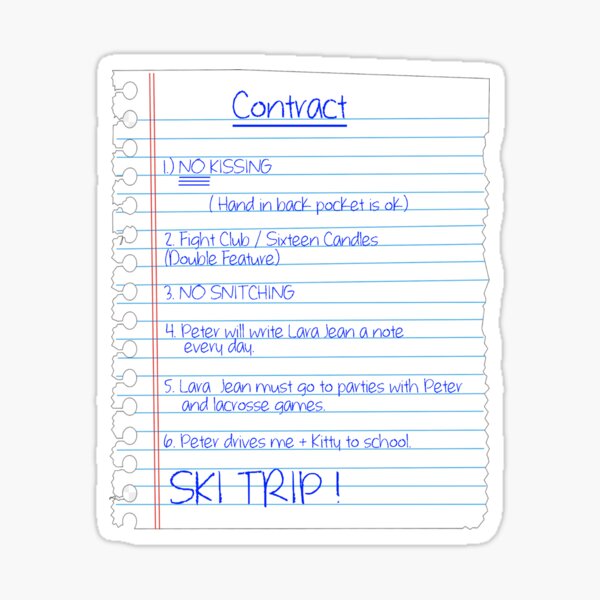 Contract
1.) NO KISSING
( Hand in back pocket is ok)
2. Fight Club / Sixteen Candles
(Double Feature)
3. NO SNITCHING
4. Peter will write Lara Jean a note
every day.
5. Lara Jean must go to parties with Peter
and lacrosse games.
6. Peter drives me + Kitty to school.
SKI TRIP !